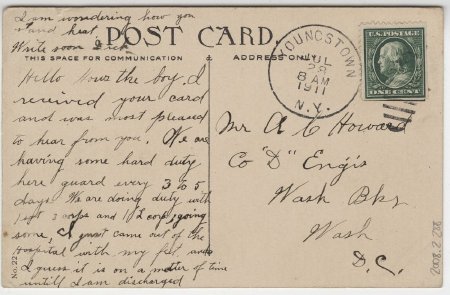 I am wondering how you
stand heat.
Write soon Dick
POST CARD.
THIS SPACE FOR COMMUNICATION
ADDRESS ONLY
Hello Louz the boy. I
received your card
and was most pleased
to hear from you. We are
having some hard duty
here guard every 3 to 5
days. We are doing duty with
1 sgt 3 corps and 1 L corp, going
some, I just came out of the
Hospital with my feet, and
I guess it is on a matter of time
untill I am discharged
No. 22
YOUNGSTOWN
JUL
28
8 AM
1911
N.Y.
U.S. POSTAGE
ONE CENT
Mr A C Howard
Co "D" Eng's
Wash Bks
Wash
D.C.
2008.2.288